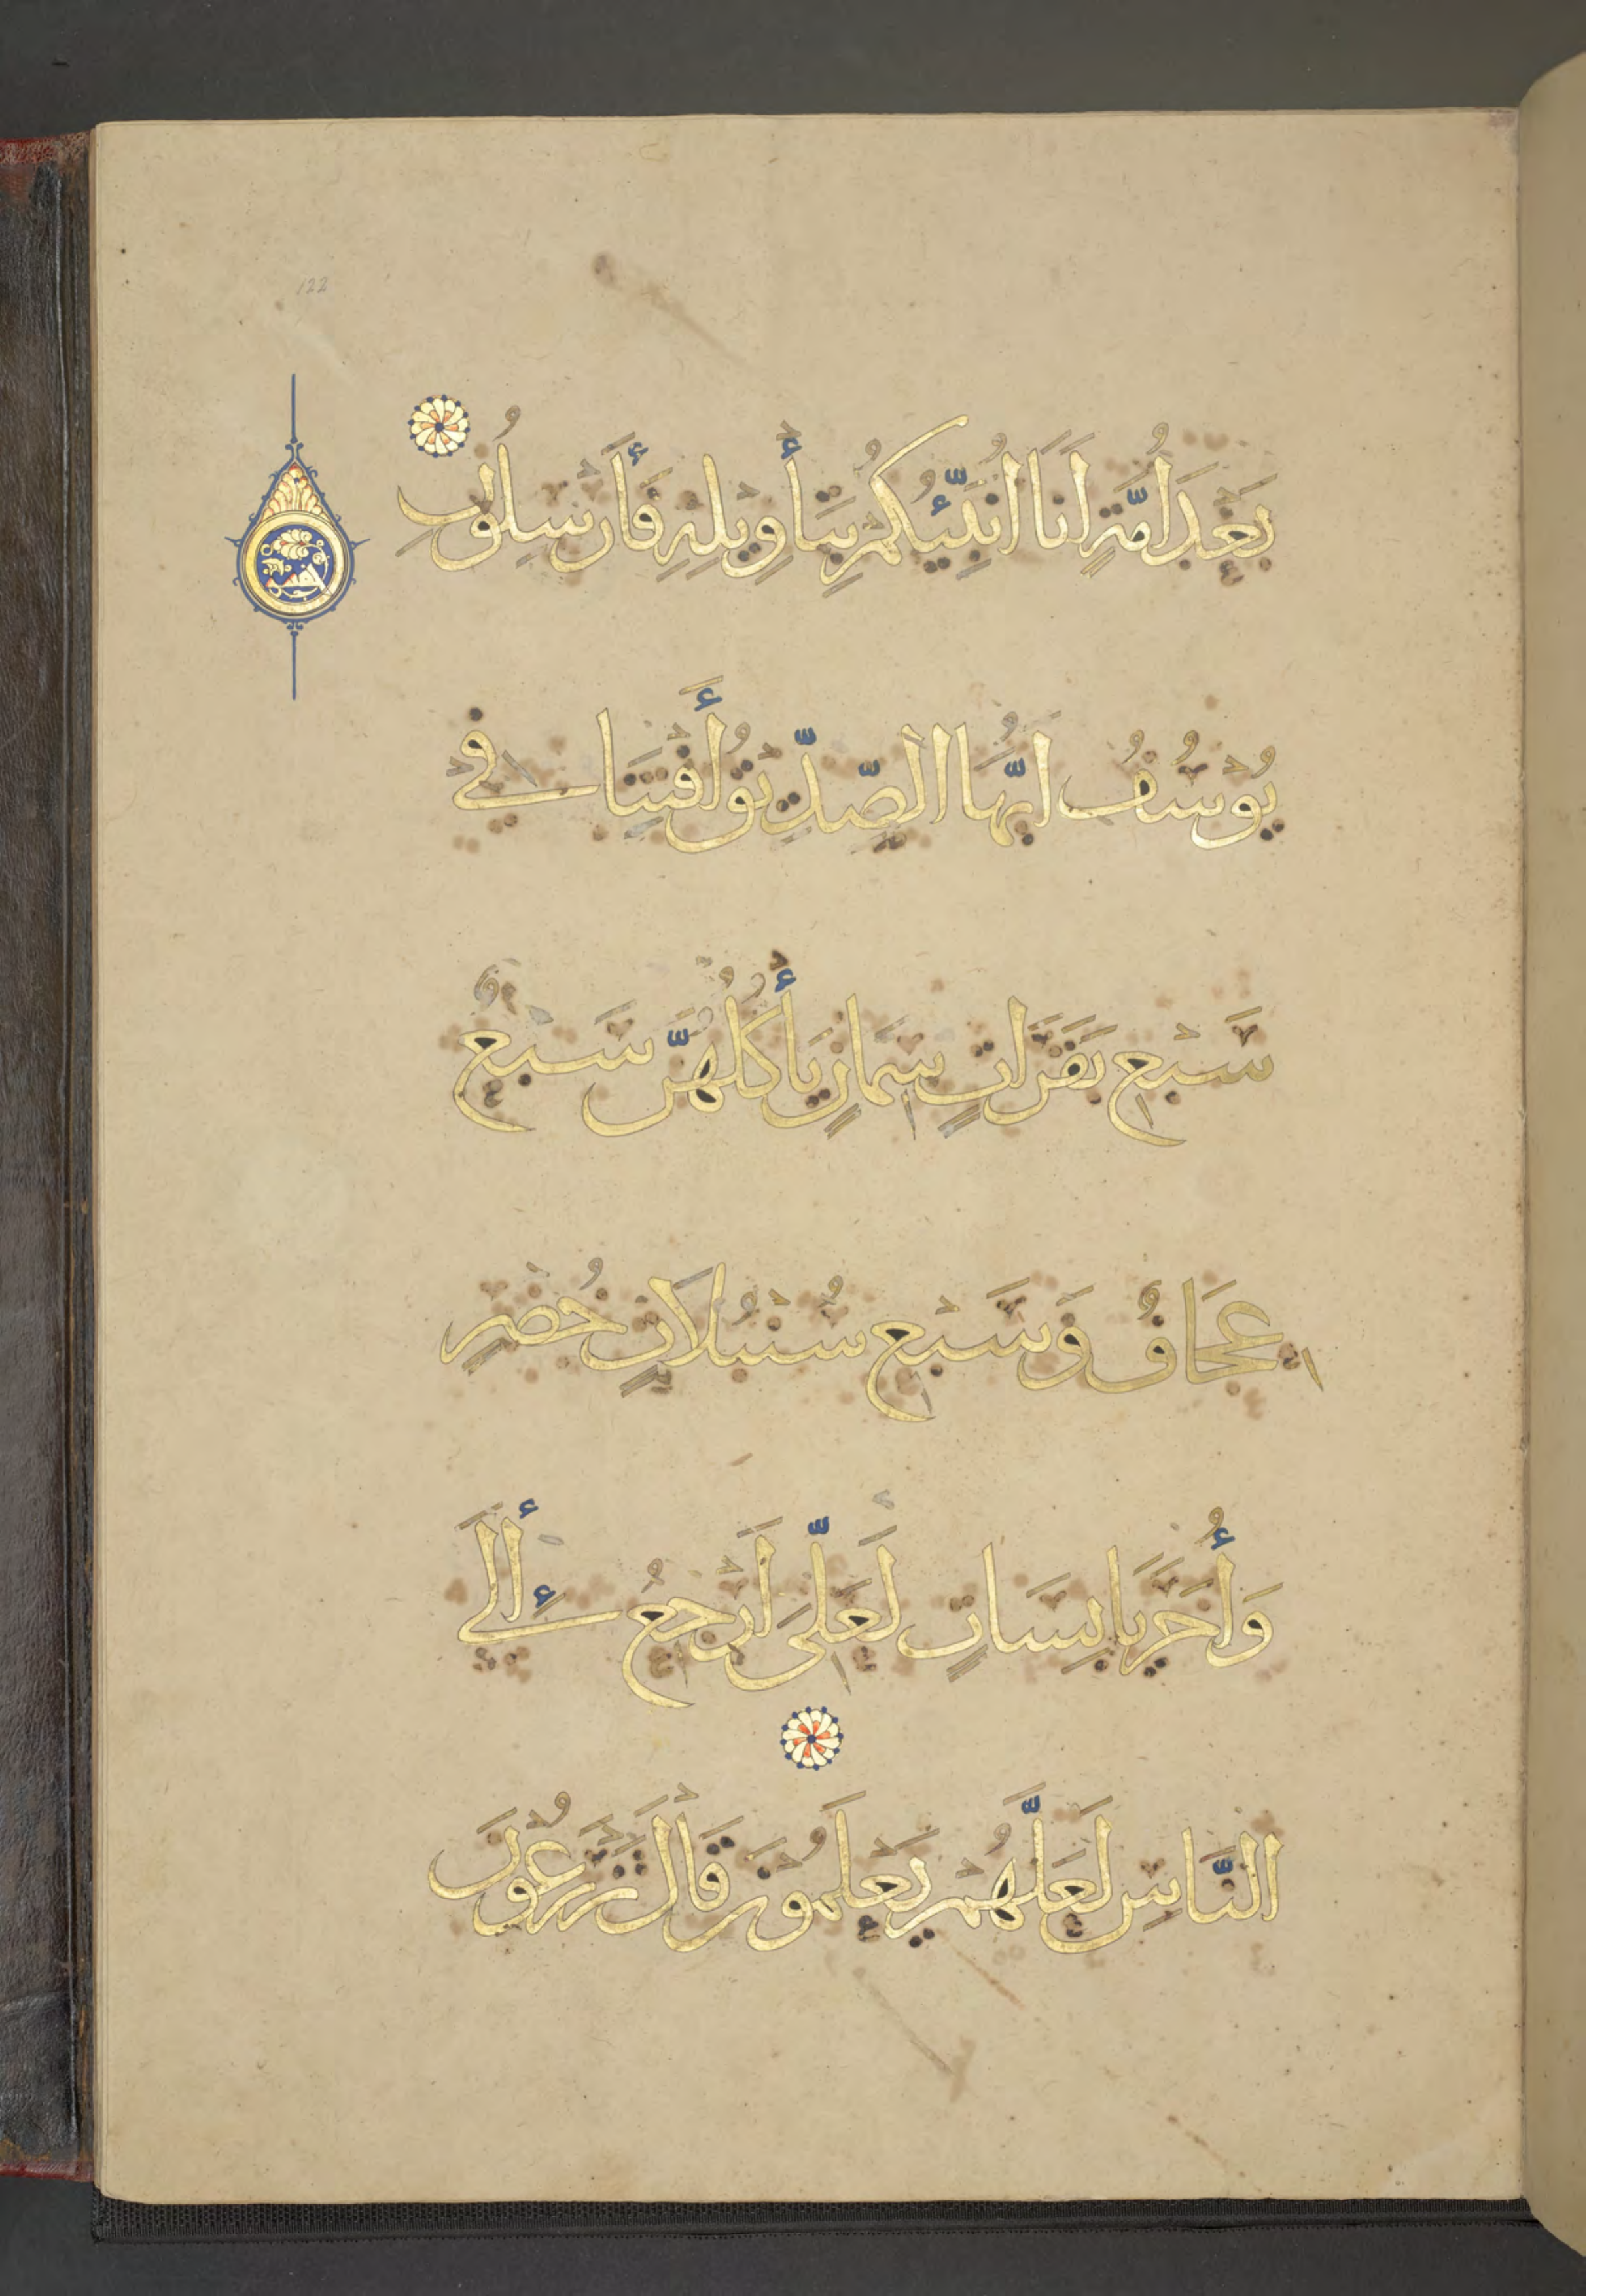 122
بَعْدَ أُمَّةٍ اَنَا اُنَبِّئُكُمْ بِتَأْوِيلِهِ فَأَرْسِلُونِ
يُوسُفُ اَيُّهَا الصِّدِّيقُ أَفْتِنَا فِي
سَبْعِ بَقَرَاتٍ سِمَانٍ يَأْكُلُهُنَّ سَبْعٌ
عِجَافٌ وَسَبْعِ سُنْبُلَاتٍ خُضْرٍ
وَأُخَرَ يَابِسَاتٍ لَعَلِّي اَرْجِعُ إِلَى
النَّاسِ لَعَلَّهُمْ يَعْلَمُونَ قَالَ تَزْرَعُونَ